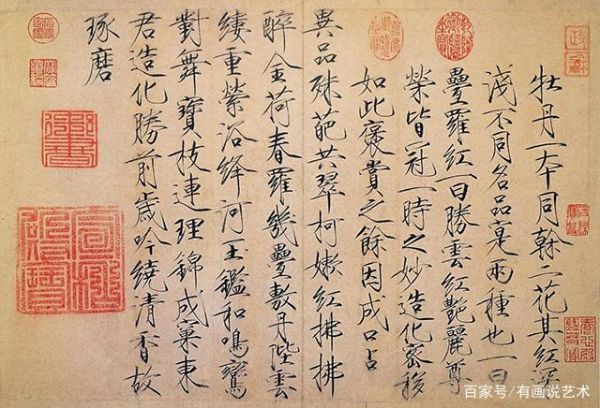 牡丹一本同幹二花其紅深
淺不同名品寔兩種也一曰
疊羅紅一曰勝雲紅艷麗尊
榮皆冠一時之妙造化密移
如此褒賞之餘因成口占
異品殊葩共翠柯嫩紅拂拂
醉金荷春羅幾疊敷丹陛雲
縷重縈浴絳河玉鑑和鳴鸞
對舞寶枝連理錦成窠東
君造化勝前歲吟繞清香故
琢磨
百家号/有画说艺术